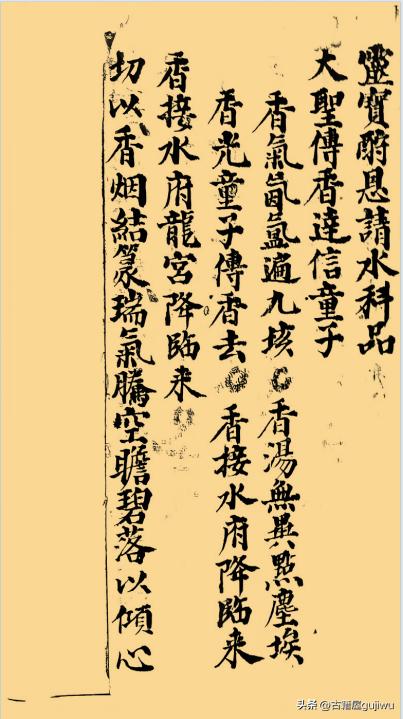 靈寶酧恩請水科品
大聖傳香達信童子
香氣氤氳遍九垓 香湯無異點塵埃
香光童子傳香去 香接水府降臨来
香接水府龍宮降臨来
切以香烟結篆瑞氣騰空瞻碧落以傾心
头条 @古籍屋gujiwu